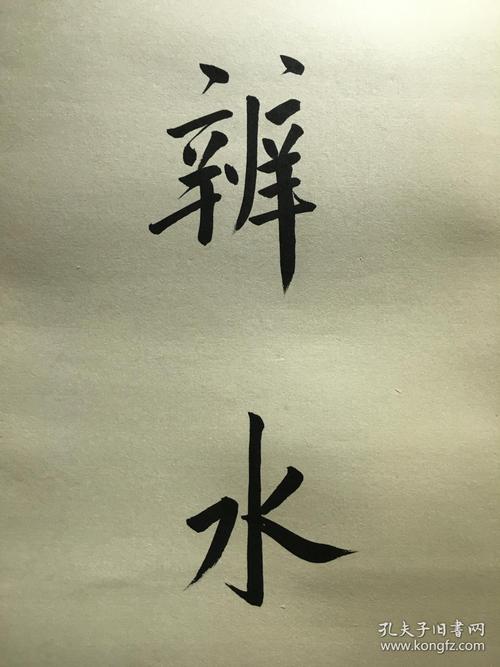 辨
水
孔夫子旧书网
www.kongfz.com